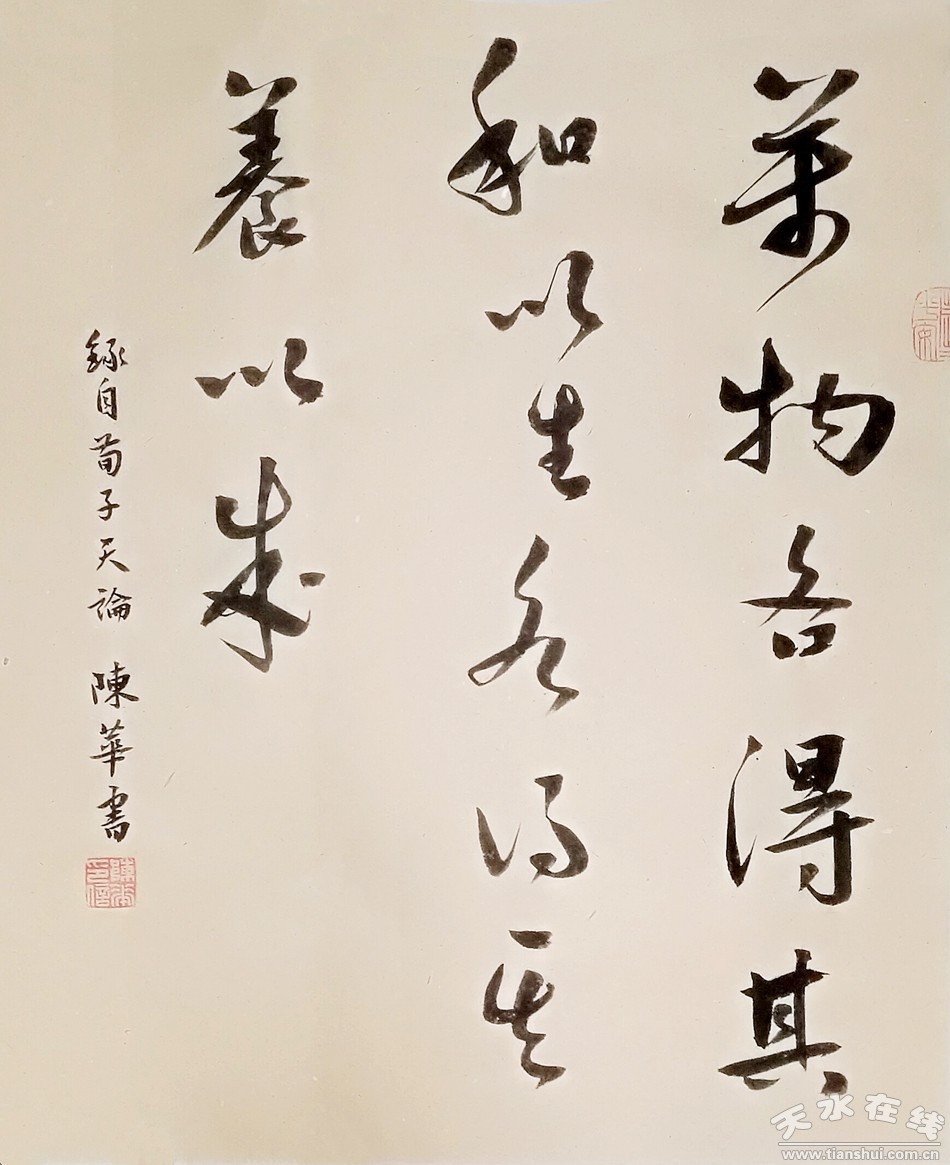 萬物各得其
和以生各得其
養以成
錄自荀子天論 陳華書
天水在线
www.tianshui.com.cn